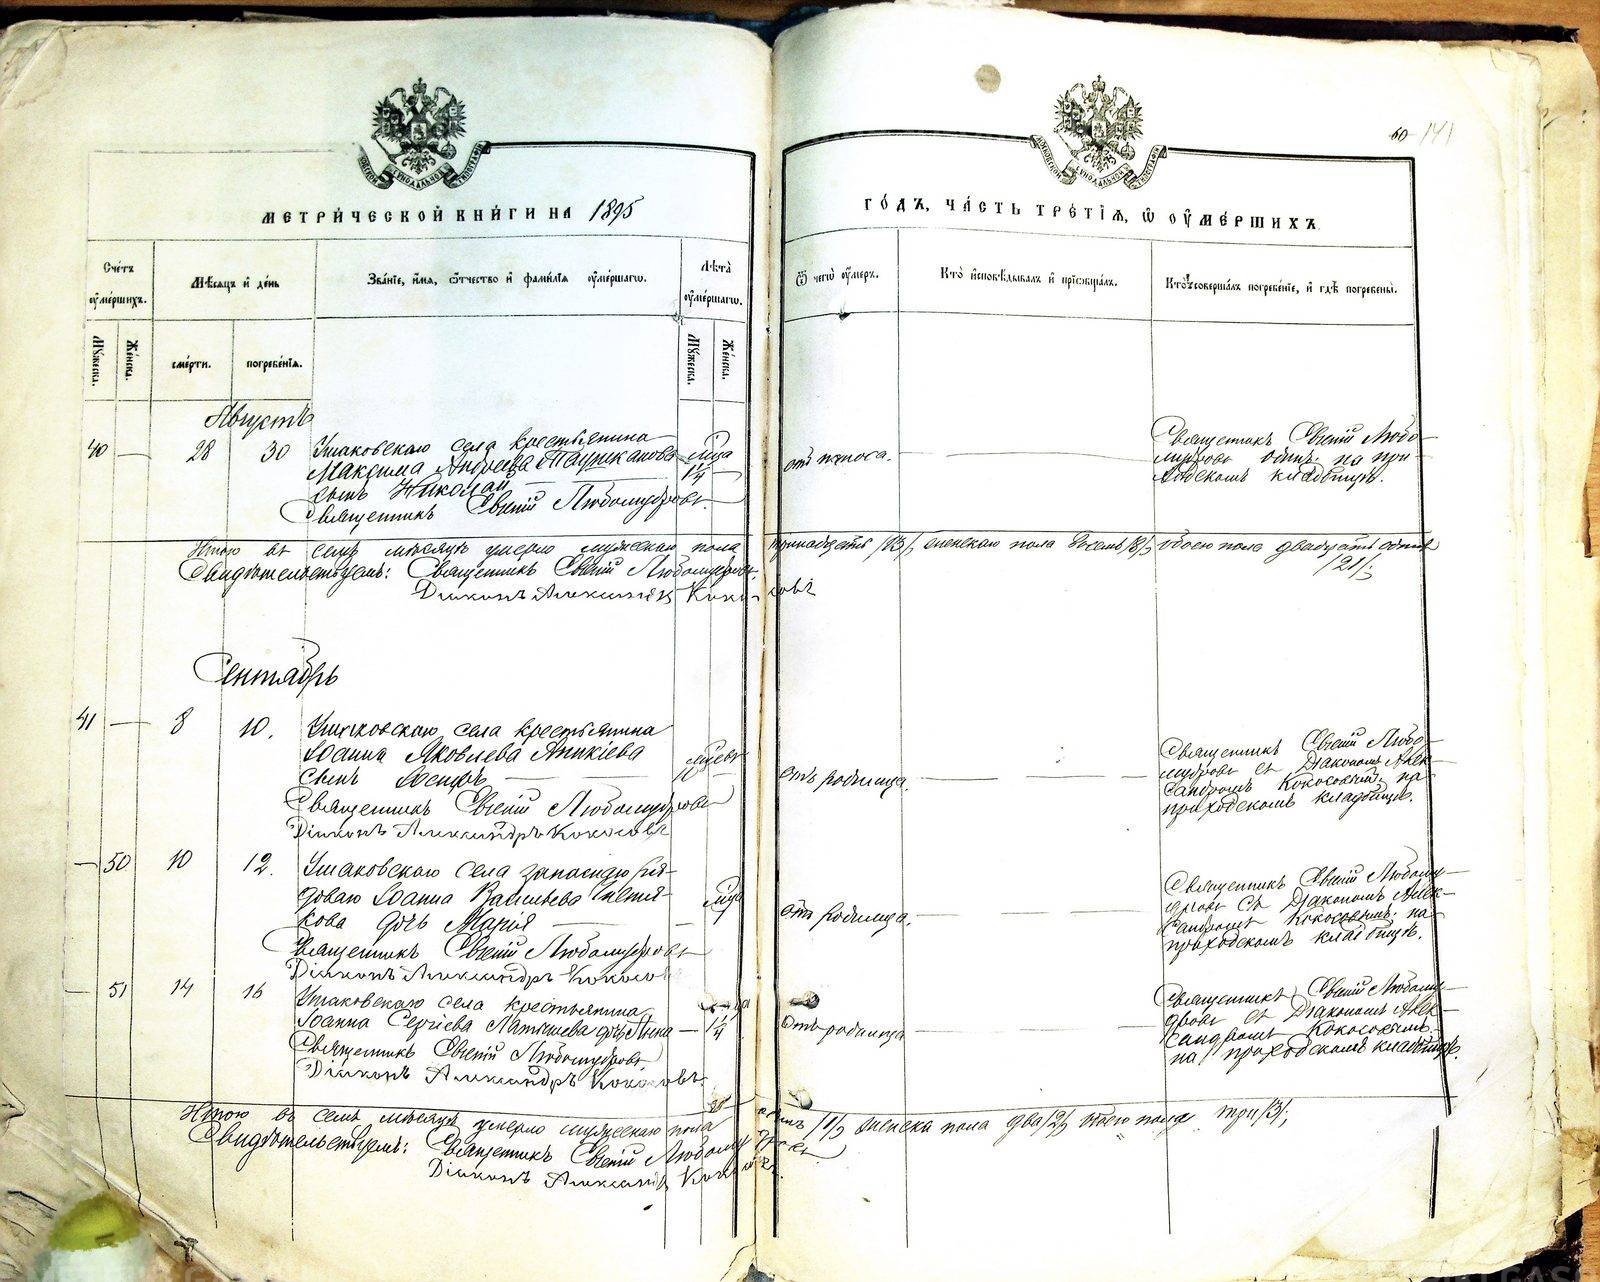 МЕТРИ́ЧЕСКОЙ КНИ́ГИ НА 1895
ГО́ДЪ, ЧА́СТЬ ТРЕ́ТІѦ, Ѡ ОУ҆МЕ́РШИХЪ
60 141
Сче́тъ оу҆ме́ршихъ.
Мѣ́сяцъ и де́нь
Зва́ніе, и҆́мя, ѻ҆́тчество и҆ фами́лія оу҆ме́ршагѡ.
Лѣ́та оу҆ме́ршагѡ.
Ѿ чегѡ̀ оу҆́меръ.
Кто̀ и҆сповѣ́дывалъ и҆ пріѡбща́лъ.
Кто̀ соверша́лъ погребе́ніе, и҆ гдѣ̀ погребены̀.
Му́жеска.
Же́нска.
сме́рти.
погребе́нія.
Му́жеска.
Же́нска.
Августъ
40 — 28 30 Ушаковскаго села крестьянина
Максима Андреева
сынъ Николай
Священникъ Евгеній Любомудровъ.
1/4
отъ поноса.
Священникъ Евгеній Любо-
мудровъ на при-
ходскомъ кладбищѣ.
Итого въ семъ мѣсяцѣ умерло мужескаго пола тринадцать /13/, женскаго пола восемь /8/, обоего пола двадцать одинъ
/21/;
Свидѣтельствуемъ: Священникъ Евгеній Любомудровъ.
Діаконъ Александръ Кокосовъ
Сентябрь
41 — 8 10. Ушаковскаго села крестьянина
Іоанна Яковлева Аникіева
сынъ
Священникъ Евгеній Любомудровъ
Діаконъ Александръ Кокосовъ
отъ родимца.
Священникъ Евгеній Любо-
мудровъ съ Діакономъ Алек-
сандромъ Кокосовымъ. на
приходскомъ кладбищѣ.
— 50 10 12. Ушаковскаго села запаснаго ря-
доваго Іоанна Васильева
кова дочь Марія
Священникъ Евгеній Любомудровъ
Діаконъ Александръ Кокосовъ
отъ родимца.
Священникъ Евгеній Любому-
дровъ съ Діакономъ Алек-
сандромъ Кокосовымъ. на
приходскомъ кладбищѣ.
— 51 14 16 Ушаковскаго села крестьянина
Іоанна Сергіева Латышева дочь Анна —
Священникъ Евгеній Любомудровъ.
Діаконъ Александръ Кокосовъ.
1/4
Отъ родимца
Священникъ Евгеній Любому-
дровъ съ Діакономъ Алек-
сандромъ Кокосовымъ.
на приходскомъ кладбищѣ.
Итого въ семъ мѣсяцѣ умерло мужескаго пола одинъ /1/ женска пола два /2/ обоего пола три /3/;
Свидѣтельствуемъ: Священникъ Евгеній Любомудровъ
Діаконъ Александръ Кокосовъ